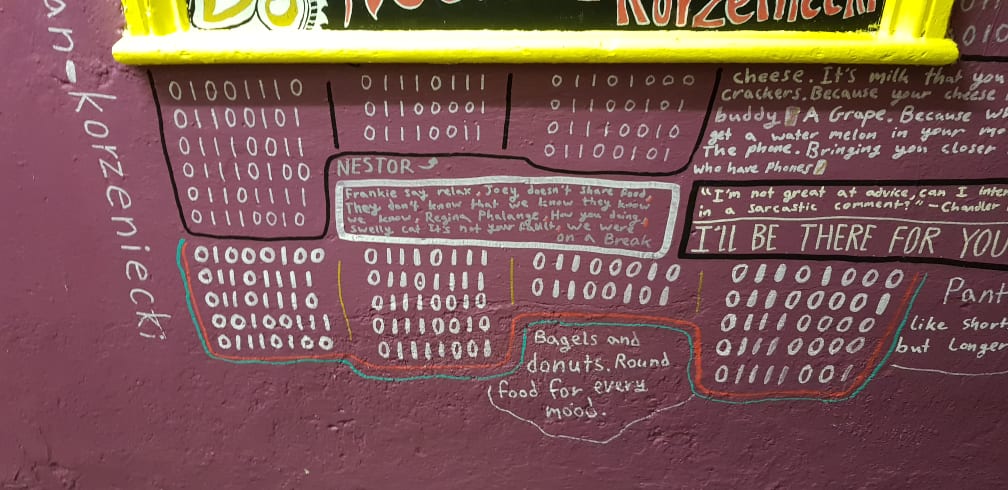 Korzeniecki
an-korzeniecki
01001110
01100101
01110011
01110100
01101111
01110010
01110111
01100001
01110011
01101000
01100101
01110010
01100101
010
cheese. It's milk that you
crackers. Because your cheese
buddy A Grape. Because
get a water melon in your
The phone. Bringing you closer
who have Phones
NESTOR
Frankie say relax, Joey doesn't share food,
They don't know that we know they know
we know, Regina Phalange, How you doing,
smelly cat It's not your fault, we were
on a Break
"I'm not great at advice, can I
in a sarcastic comment?" - Chandler
I'll BE THERE FOR YOU
01000100
01101111
01101110
00100111
01110100
01110111
01101111
01110010
01110010
01111001
01100010
01100101
01101000
01100001
01110000
01110000
01111001
like
but longer
Bagels and
donuts. Round
food for every
mood.